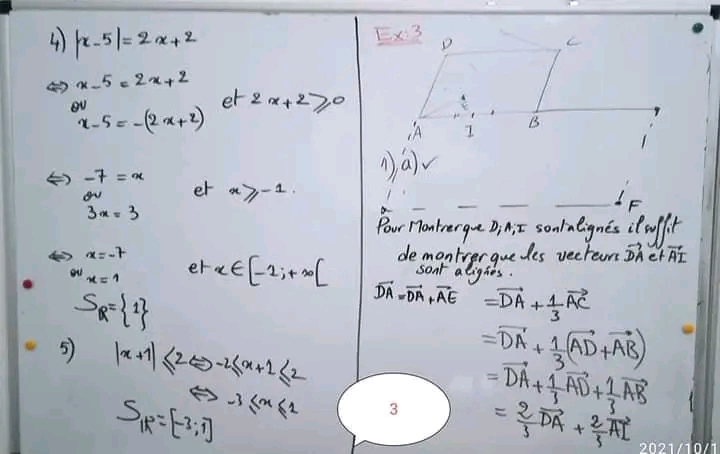 4) |x-5| = 2x+2
⇔ x-5 = 2x+2
ou
x-5 = -(2x+2)
et 2x+2 ⩾ 0
⇔ -7 = x
ou
3x = 3
et x ⩾ -1.
⇔ x = -7
ou x = 1
et x ∈ [-1; +∞[
S_ℝ = {1}
5) |x+1| ⩽ 2 ⇔ -2 ⩽ x+1 ⩽ 2
⇔ -3 ⩽ x ⩽ 1
S_ℝ = [-3; 1]
3
Ex: 3
D C
A I B
F
1) a) ✓
Pour Montrer que D; A; I sont alignés il suffit
de montrer que les vecteurs DA⃗ et AI⃗
sont alignés.
DA⃗ = DA⃗ + AE⃗ = DA⃗ + 1/3 AC⃗
= DA⃗ + 1/3 (AD⃗ + AB⃗)
= DA⃗ + 1/3 AD⃗ + 1/3 AB⃗
= 2/3 DA⃗ + 2/3 AI⃗
2021/10/1